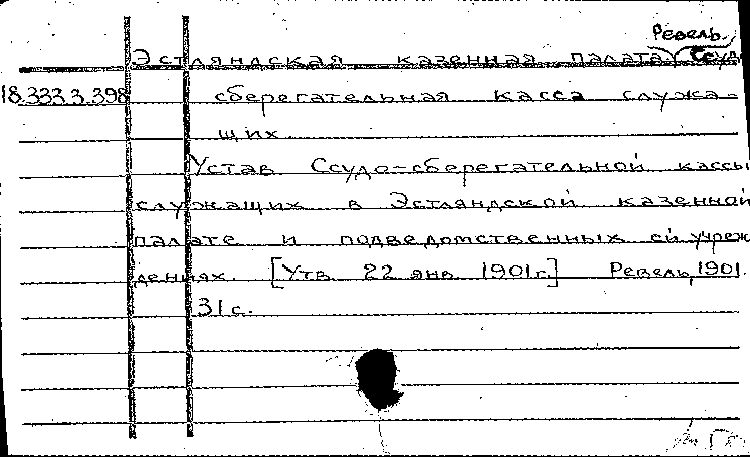 Ревель.
Эстляндская казенная палата. Ссудо-
18.333.3.398 сберегательная касса служа-
щих.
Устав Ссудо-сберегательной кассы
служащих в Эстляндской казенной
палате и подведомственных ей учреж
дениях. [Утв. 22 янв. 1901 г.] Ревель, 1901.
31 с.